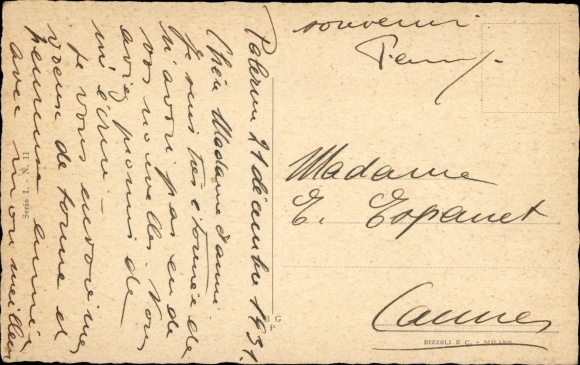 Palerm 21 décembre 1931.
Chère Madame
Je suis très étonnée de
n'avoir pas eu de
vos nouvelles. Vous
aviez promis de
m'écrire.
Je vous envoie mes
vœux de bonne et
heureuse année
avec mon meilleur
souvenir
Madame
E. Espanet
Cannes
Serie 1 - N. 11
B G
P
RIZZOLI E C. - MILANO